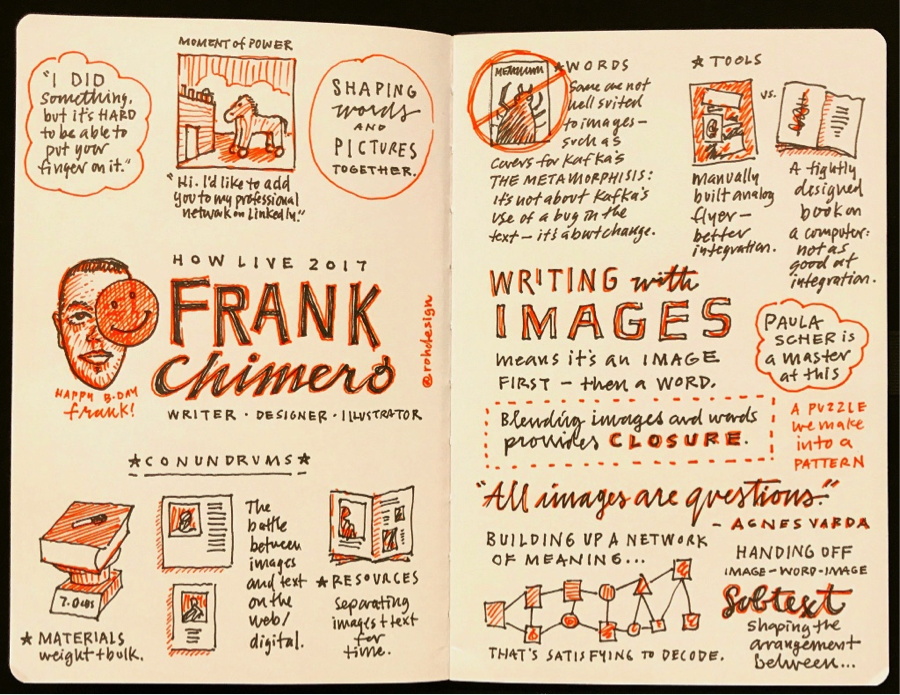 "I DID
something,
but it's HARD
to be able to
put your
finger on it."
MOMENT of POWER
"Hi. I'd like to add
you to my professional
network on LinkedIn."
SHAPING
words
AND
PICTURES
TOGETHER.
HOW LIVE 2017
FRANK
Chimero
WRITER · DESIGNER · ILLUSTRATOR
@rohdesign
HAPPY B-DAY
frank!
★CONUNDRUMS★
7.0 LBS
★ MATERIALS
weight + bulk.
The
battle
between
images
and text
on the
web/
digital.
★RESOURCES
separating
images + text
for
time.
★WORDS
Some are not
well suited
to images –
such as
covers for Kafka's
THE METAMORPHISIS:
it's not about Kafka's
use of a bug in the
text – it's about change.
★ TOOLS
vs.
manually
built analog
flyer –
better
integration.
A tightly
designed
book on
a computer:
not as
good at
integration.
WRITING with
IMAGES
means it's an IMAGE
FIRST – then a WORD.
PAULA
SCHER is
a master
at this
Blending images and words
provides CLOSURE.
A PUZZLE
we make
into a
PATTERN
"All images are questions."
– AGNES VARDA
BUILDING UP A NETWORK
OF MEANING...
THAT'S SATISFYING TO DECODE.
HANDING OFF
IMAGE–WORD–IMAGE
Subtext
shaping the
arrangement
between...